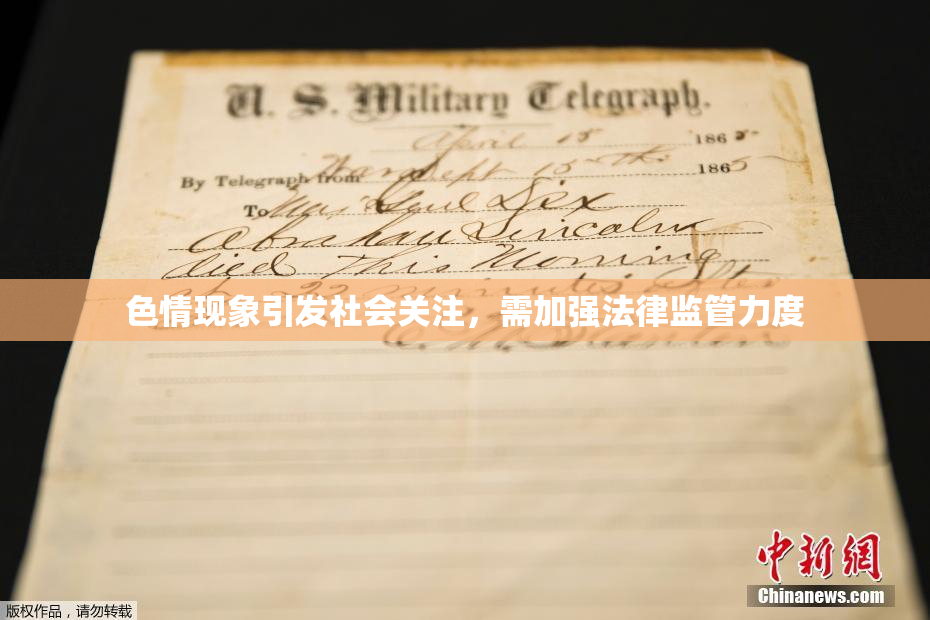 U. S. Military Telegraph.
April 15 1865
By Telegraph from War Dept 15th 1865
To Maj Genl Dix
Abraham Lincoln
died This Morning
at 22 minutes after
色情现象引发社会关注，需加强法律监管力度
中新网
Chinanews.com
版权作品，请勿转载